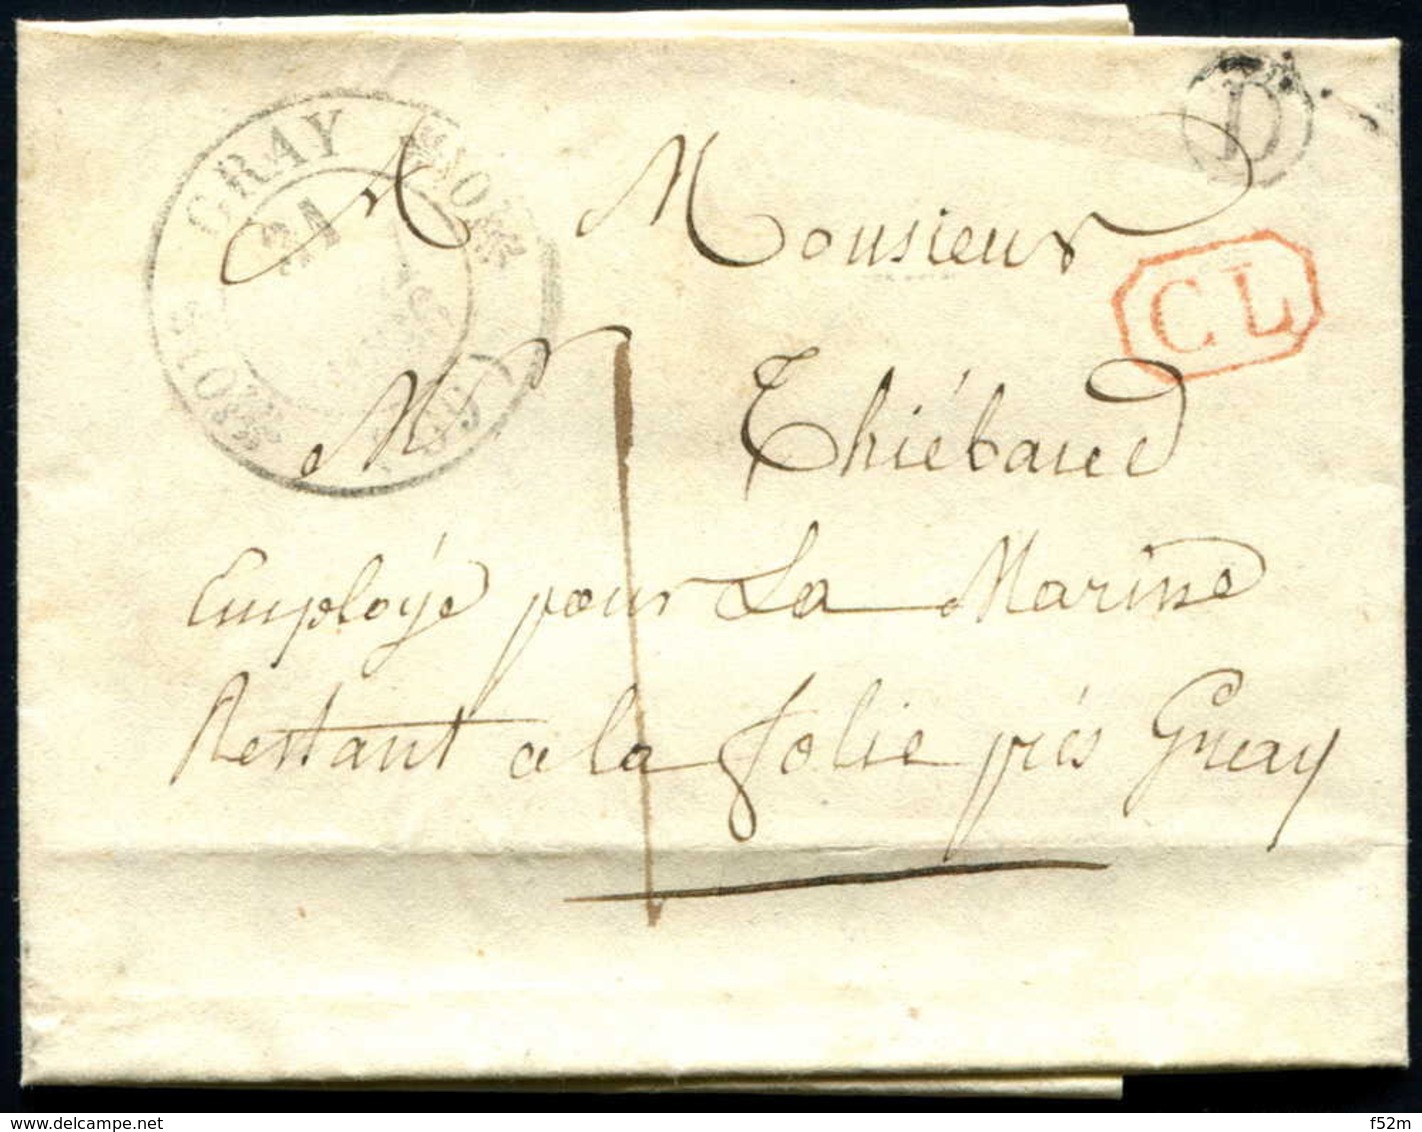 GRAY
21
(69)
D
CL
A Monsieur
Mr Thiébaud
Employé pour La Marine
Restant a la folie prés Gray
1
www.delcampe.net
f52m